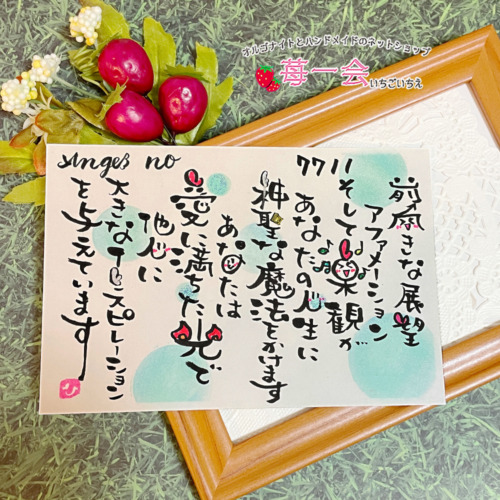 オルゴナイトとハンドメイドのネットショップ
苺一会
いちごいちえ
Angel no 7711
前向きな展望
アファメーション
そして楽観が
あなたの人生に
神聖な魔法をかけます
あなたは
愛に満ちた光で
他人に
大きなインスピレーション
を与えています